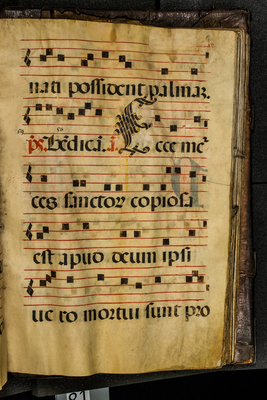 nati possident palmaʒ.
59 50
ps. Bēdicā. ā. Ecce mer
ces sanctor copiosa
est apud deum ipsi
ue ro mortui sunt pro
91